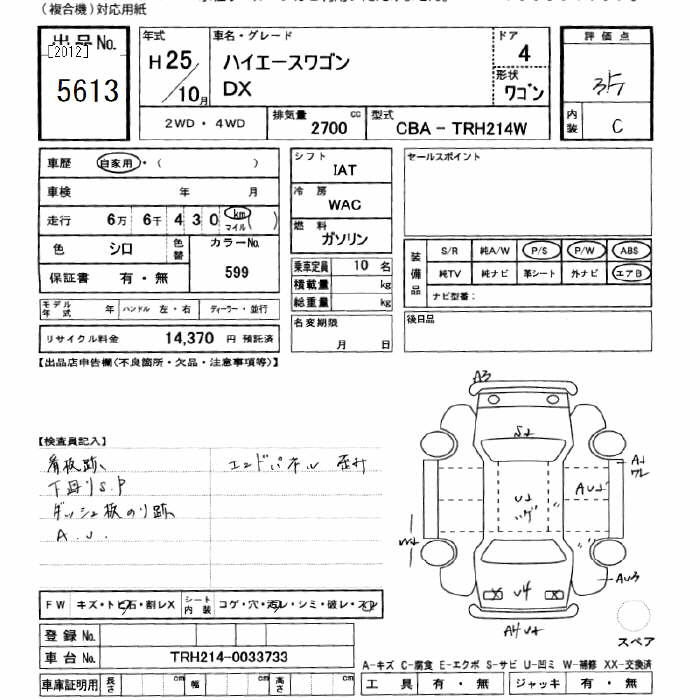 (複合機)対応用紙
出品No.
[2012]
5613
年式
H25/10月
車名・グレード
ハイエースワゴン
DX
ドア
4
形状
ワゴン
2WD・4WD
排気量 cc
2700
型式
CBA - TRH214W
評価点
内装
C
車歴 自家用・( )
車検 年 月
走行 6万 6千 430 km マイル ( )
色 シロ 色替
カラーNo.
599
保証書 有・無
モデル年式 年 ハンドル 左・右 ディーラー・並行
リサイクル料金 14,370 円 預託済
シフト
IAT
冷房
WAC
燃料
ガソリン
乗車定員 10 名
積載量 kg
総重量 kg
名変期限
月 日
セールスポイント
装備品
S/R 純A/W P/S P/W ABS
純TV 純ナビ 革シート 外ナビ エアB
ナビ型番:
後日品
【出品店申告欄(不良箇所・欠品・注意事項等)】
【検査員記入】
看板跡、
エンドパネル
下廻りS.P
ダッシュ板のり跡
A.U.
A3
S2
U2
A4 U2
U4
AU3
スペア
FW キズ・トビ石・割レX
シート内装 コゲ・穴・汚レ・シミ・破レ・スレ
登録No.
車台No. TRH214-0033733
車庫証明用 長さ cm 幅 cm 高さ cm
A-キズ C-腐食 E-エクボ S-サビ U-凹ミ W-補修 XX-交換済
工具 有・無 ジャッキ 有・無